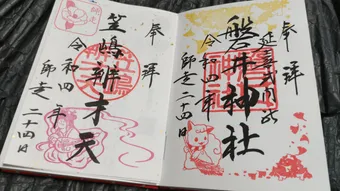 奉拝
延喜式内社
磐井神社
令和四年
師走二十四日
奉拝
笠嶋辨才天
令和四年
師走二十四日
師走